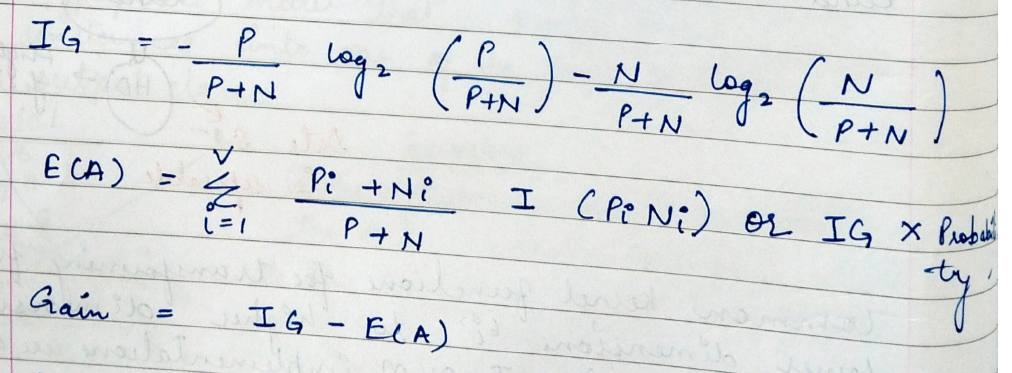 IG = - P/P+N log₂ (P/P+N) - N/P+N log₂ (N/P+N)
E(A) = V∑i=1 Pi + Ni/P + N I (Pi Ni) or IG x Probability.
Gain = IG - E(A)